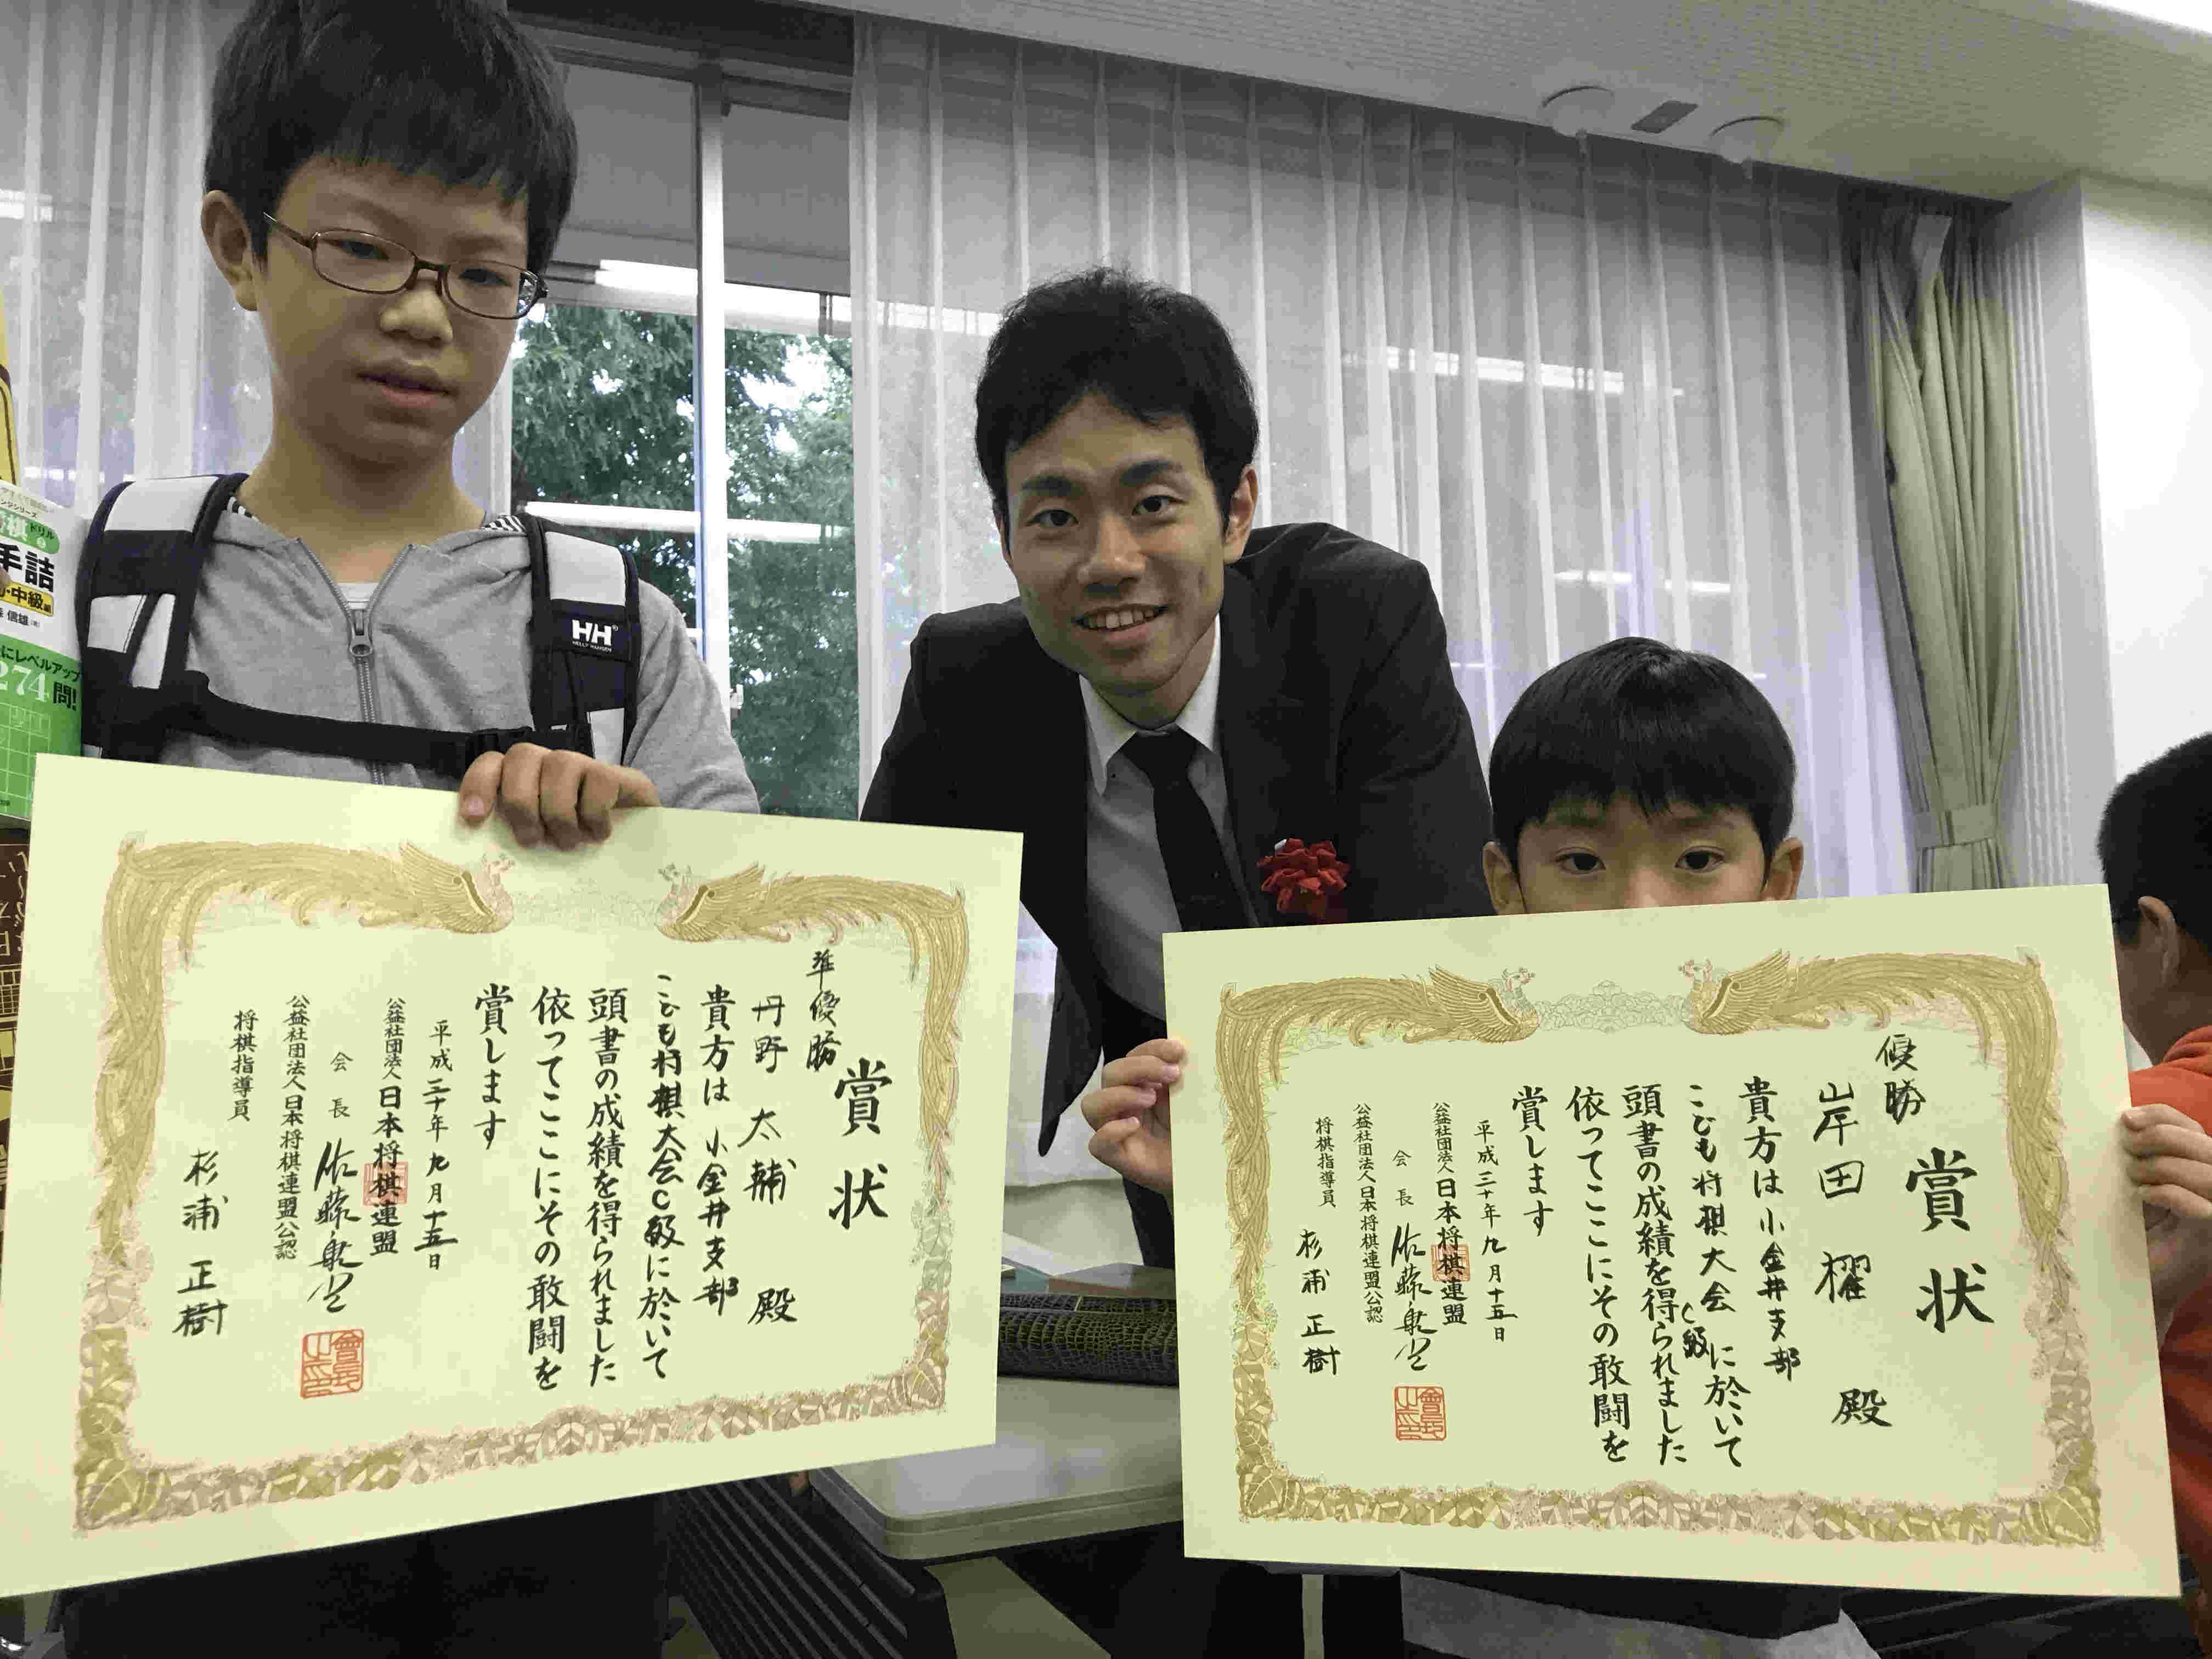 棋ドリル
手詰
中級
信雄
にレベルアップ
274問!
HH
HELLY HANSEN
賞状
準優勝
丹野 太輔 殿
貴方は 小金井支部
こども将棋大会C級に於いて
頭書の成績を得られました
依ってここにその敢闘を
賞します
平成三十年九月十五日
公益社団法人日本将棋連盟
会長 佐藤康光
公益社団法人日本将棋連盟公認
将棋指導員
杉浦 正樹
賞状
優勝
岸田 櫂 殿
貴方は小金井支部
こども将棋大会C級に於いて
頭書の成績を得られました
依ってここにその敢闘を
賞します
平成三十年九月十五日
公益社団法人日本将棋連盟
会長 佐藤康光
公益社団法人日本将棋連盟公認
将棋指導員
杉浦 正樹